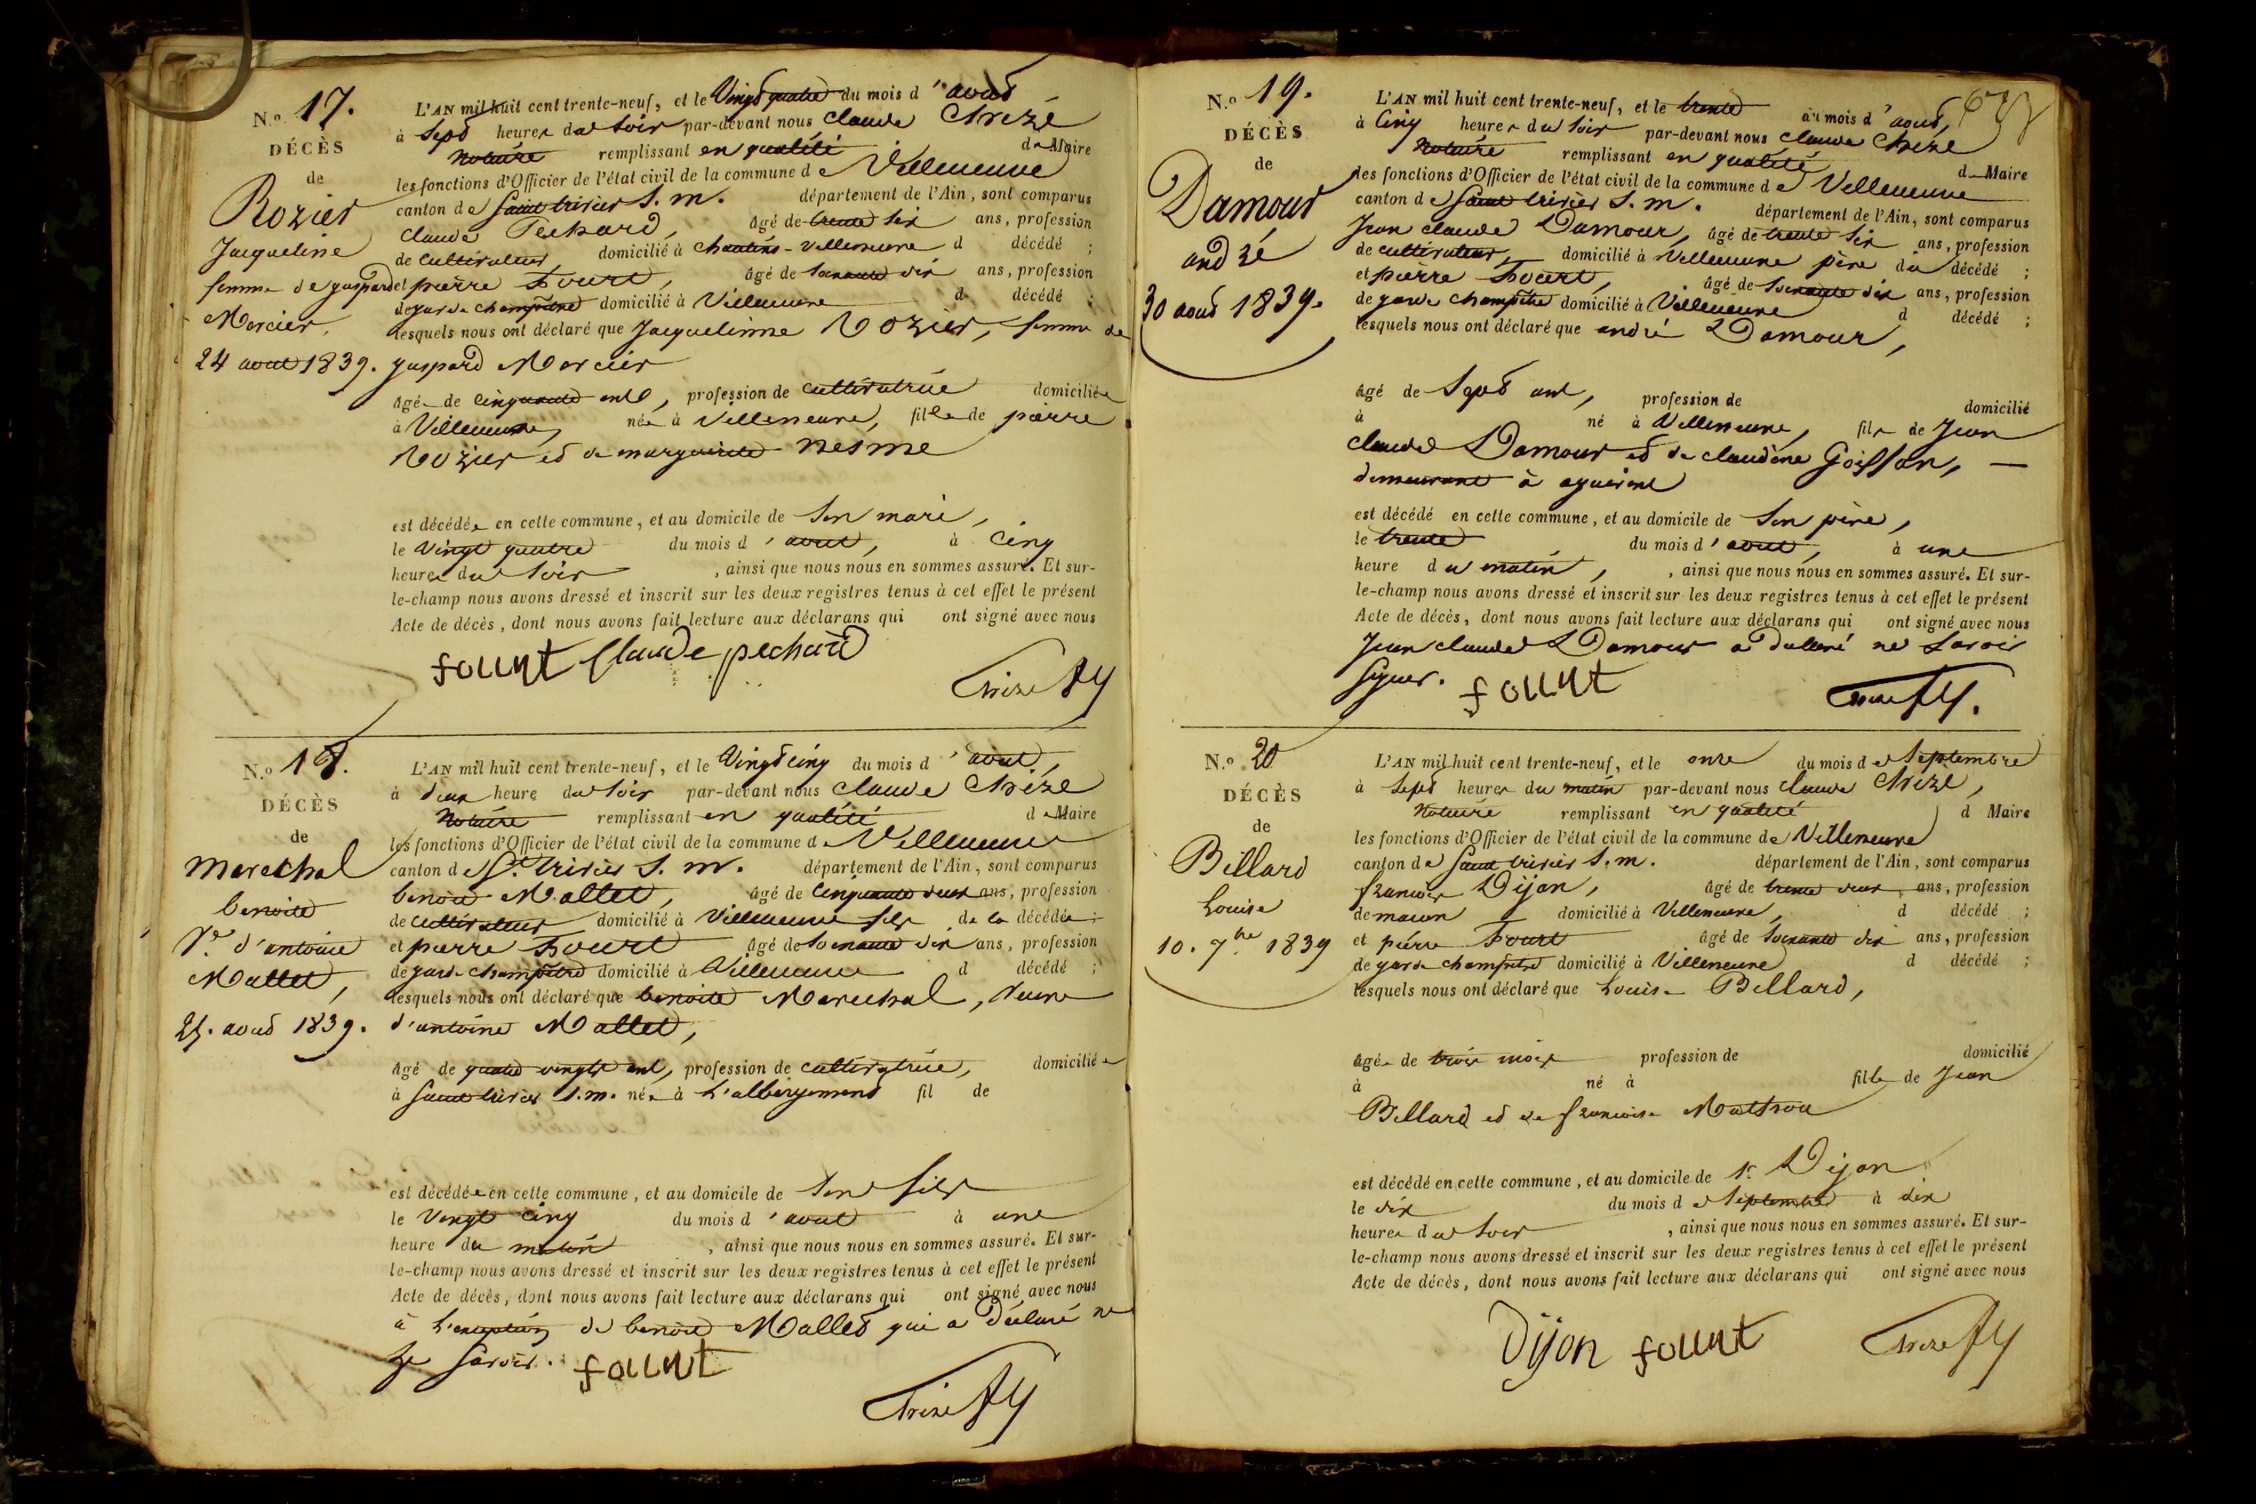 N.o 17.
DÉCÈS
de
Rozier
Jacqueline
femme de gaspard
Mercier,
24 aout 1839.
L'AN mil huit cent trente-neuf, et le Vingt quatre du mois d'aout
à Sept heures du Soir par-devant nous Claude Chizé
Notaire remplissant en qualité de Maire
les fonctions d'Officier de l'état civil de la commune de Villeneuve
canton de Saint trivier S. m. département de l'Ain, sont comparus
Claude Pechard, âgé de trente Six ans, profession
de Cultivateur domicilié à Chanteins-Villeneuve d décédé ;
et pierre Fourt, âgé de Soixante dix ans, profession
de garde champêtre domicilié à Villeneuve d décédé ;
lesquels nous ont déclaré que Jacquelinne Rozier, femme de
gaspard Mercier
âgée de cinquante ans, profession de cultivatrice domiciliée
à Villeneuve, née à Villeneuve, fille de pierre
Rozier et de marguerite Nesme
est décédée en cette commune, et au domicile de Son mari,
le Vingt quatre du mois d'aout, à Cinq
heures du Soir , ainsi que nous nous en sommes assuré. Et sur-
le-champ nous avons dressé et inscrit sur les deux registres tenus à cet effet le présent
Acte de décès, dont nous avons fait lecture aux déclarans qui ont signé avec nous
fount Claude pechard
N.o 18.
DÉCÈS
de
Marechal
benoite
Ve. d'antoine
Mallet,
25. aout 1839.
L'AN mil huit cent trente-neuf, et le Vingt cinq du mois d'aout,
à deux heure du Soir par-devant nous Claude Chizé
Notaire remplissant en qualité de Maire
les fonctions d'Officier de l'état civil de la commune de Villeneuve
canton de St. trivier S. m. département de l'Ain, sont comparus
benoit Mallet, âgé de Cinquante deux ans, profession
de Cultivateur domicilié à Villeneuve fils de la décédée ;
et pierre Fourt âgé de Soixante dix ans, profession
de garde champêtre domicilié à Villeneuve d décédé ;
lesquels nous ont déclaré que benoite Marechal, veuve
d'antoine Mallet,
âgé de quatre vingts ans, profession de cultivatrice, domiciliée
à Saint trivier S.m. née à L'abergement fil de
est décédée en cette commune, et au domicile de Son fils
le Vingt cinq du mois d'aout à une
heure du matin , ainsi que nous nous en sommes assuré. Et sur-
le-champ nous avons dressé et inscrit sur les deux registres tenus à cet effet le présent
Acte de décès, dont nous avons fait lecture aux déclarans qui ont signé avec nous
à L'exception de benoit Mallet qui a déclaré ne
le savoir. fount
N.o 19.
DÉCÈS
de
Damour
andré
30 aout 1839.
L'AN mil huit cent trente-neuf, et le trente du mois d'aout,
à Cinq heures du Soir par-devant nous Claude Chizé
Notaire remplissant en qualité de Maire
les fonctions d'Officier de l'état civil de la commune de Villeneuve
canton de Saint trivier S. m. département de l'Ain, sont comparus
Jean claude Damour, âgé de trente Six ans, profession
de cultivateur, domicilié à Villeneuve père du décédé ;
et pierre Fourt, âgé de Soixante dix ans, profession
de garde champêtre domicilié à Villeneuve d décédé ;
lesquels nous ont déclaré que andré Damour,
âgé de Sept ans, profession de domicilié
à né à Villeneuve, fils de Jean
claude Damour et de claudine Goiffon,
demeurant à
est décédé en cette commune, et au domicile de Son père,
le trente du mois d'aout, à une
heure du matin, , ainsi que nous nous en sommes assuré. Et sur-
le-champ nous avons dressé et inscrit sur les deux registres tenus à cet effet le présent
Acte de décès, dont nous avons fait lecture aux déclarans qui ont signé avec nous
Jean claude Damour a déclaré ne Savoir
Signer. fount
N.o 20
DÉCÈS
de
Billard
Louise
10. 7bre 1839
L'AN mil huit cent trente-neuf, et le onze du mois de Septembre
à Sept heures du matin par-devant nous Claude Chizé,
Notaire remplissant en qualité d Maire
les fonctions d'Officier de l'état civil de la commune de Villeneuve
canton de Saint trivier S.m. département de l'Ain, sont comparus
françois Dijon, âgé de trente deux ans, profession
de macon domicilié à Villeneuve, d décédé ;
et pierre Fourt âgé de Soixante dix ans, profession
de garde champêtre domicilié à Villeneuve d décédé ;
lesquels nous ont déclaré que Louise Billard,
âgée de trois mois profession de domicilié
à né à fille de Jean
Billard et de françoise
est décédé en cette commune, et au domicile de Sr. Dijon
le dix du mois de Septembre à dix
heures du Soir , ainsi que nous nous en sommes assuré. Et sur-
le-champ nous avons dressé et inscrit sur les deux registres tenus à cet effet le présent
Acte de décès, dont nous avons fait lecture aux déclarans qui ont signé avec nous
Dijon fount